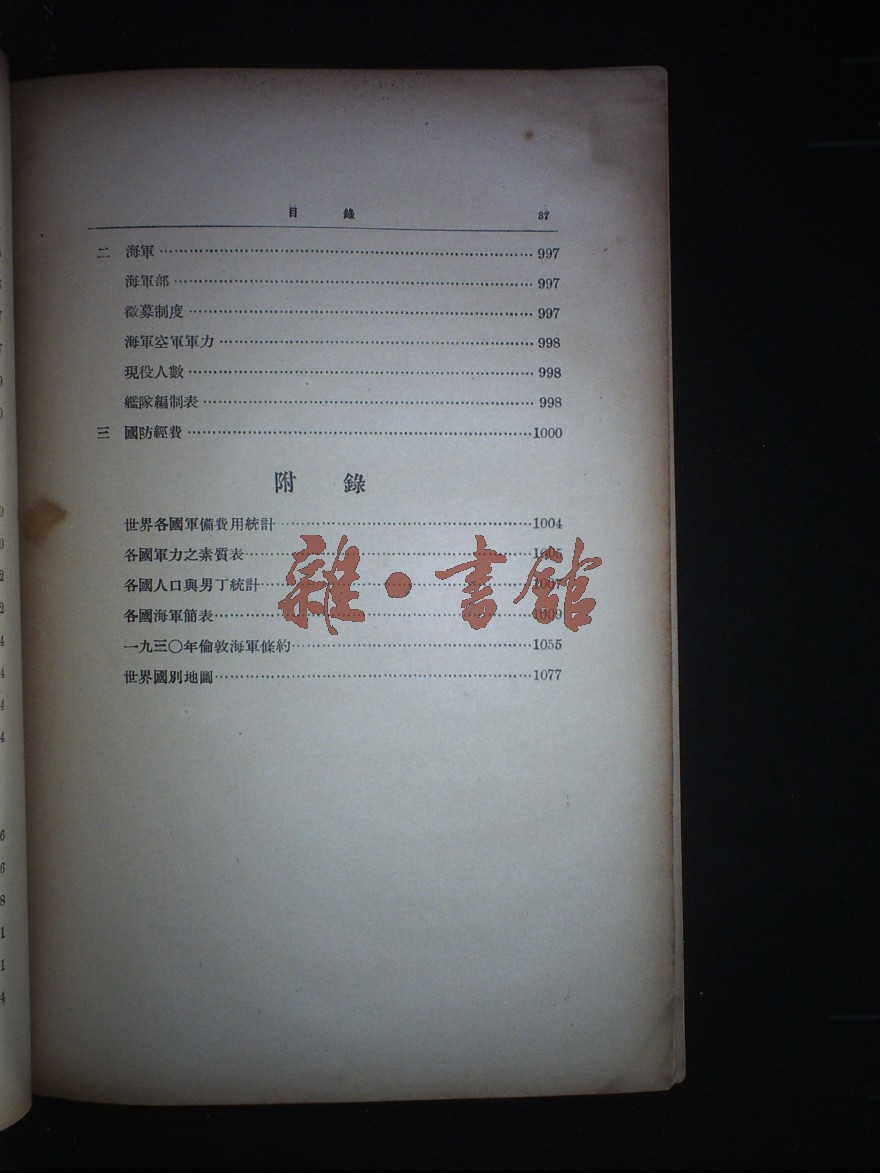 目 錄 37
二 海軍 997
海軍部 997
徵募制度 997
海軍空軍軍力 998
現役人數 998
艦隊編制表 998
三 國防經費 1000
附 錄
世界各國軍備費用統計 1004
各國軍力之素質表 1005
各國人口與男丁統計 1007
各國海軍簡表 1009
一九三〇年倫敦海軍條約 1055
世界國別地圖 1077
雜·書館